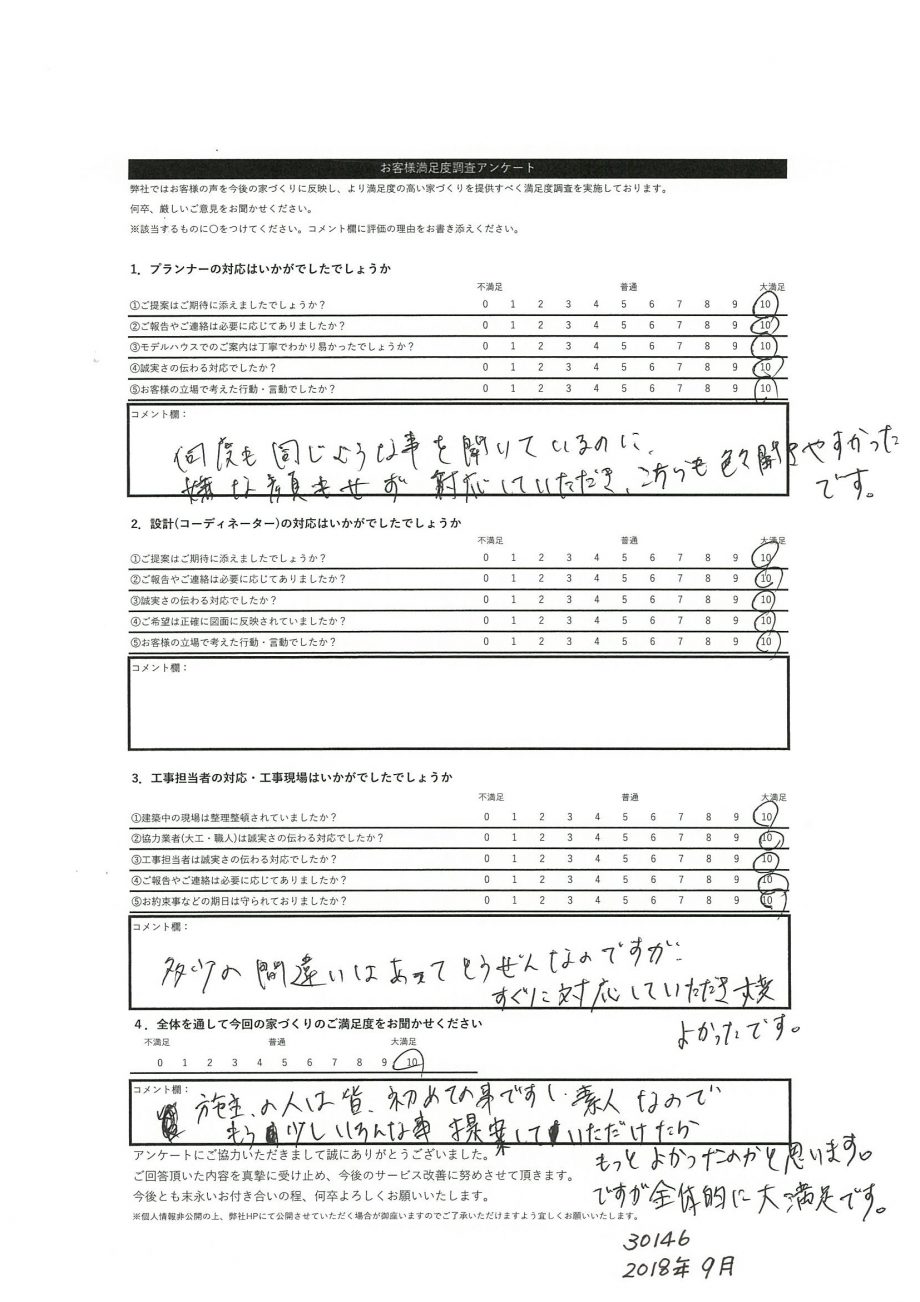 お客様満足度調査アンケート
弊社ではお客様の声を今後の家づくりに反映し、より満足度の高い家づくりを提供すべく満足度調査を実施しております。
何卒、厳しいご意見をお聞かせください。
※該当するものに〇をつけてください。コメント欄に評価の理由をお書き添えください。
1．プランナーの対応はいかがでしたでしょうか
不満足 普通 大満足
①ご提案はご期待に添えましたでしょうか？ 0 1 2 3 4 5 6 7 8 9 10
②ご報告やご連絡は必要に応じてありましたか？ 0 1 2 3 4 5 6 7 8 9 10
③モデルハウスでのご案内は丁寧でわかり易かったでしょうか？ 0 1 2 3 4 5 6 7 8 9 10
④誠実さの伝わる対応でしたか？ 0 1 2 3 4 5 6 7 8 9 10
⑤お客様の立場で考えた行動・言動でしたか？ 0 1 2 3 4 5 6 7 8 9 10
コメント欄：
何度も同じような事を聞いているのに、
嫌な顔もせず対応していただき、こちらも色々聞きやすかった
です。
2．設計(コーディネーター)の対応はいかがでしたでしょうか
不満足 普通 大満足
①ご提案はご期待に添えましたでしょうか？ 0 1 2 3 4 5 6 7 8 9 10
②ご報告やご連絡は必要に応じてありましたか？ 0 1 2 3 4 5 6 7 8 9 10
③誠実さの伝わる対応でしたか？ 0 1 2 3 4 5 6 7 8 9 10
④ご希望は正確に図面に反映されていましたか？ 0 1 2 3 4 5 6 7 8 9 10
⑤お客様の立場で考えた行動・言動でしたか？ 0 1 2 3 4 5 6 7 8 9 10
コメント欄：
3．工事担当者の対応・工事現場はいかがでしたでしょうか
不満足 普通 大満足
①建築中の現場は整理整頓されていましたか？ 0 1 2 3 4 5 6 7 8 9 10
②協力業者(大工・職人)は誠実さの伝わる対応でしたか？ 0 1 2 3 4 5 6 7 8 9 10
③工事担当者は誠実さの伝わる対応でしたか？ 0 1 2 3 4 5 6 7 8 9 10
④ご報告やご連絡は必要に応じてありましたか？ 0 1 2 3 4 5 6 7 8 9 10
⑤お約束事などの期日は守られておりましたか？ 0 1 2 3 4 5 6 7 8 9 10
コメント欄：
多少の間違いはあってとうぜんなのですが、
すぐに対応していただき大変
よかったです。
4．全体を通して今回の家づくりのご満足度をお聞かせください
不満足 普通 大満足
0 1 2 3 4 5 6 7 8 9 10
コメント欄：
施主の人は皆、初めての事ですし、素人なので
もう少しいろんな事提案していただけたら
もっとよかったのかと思います。
ですが全体的に大満足です。
アンケートにご協力いただきまして誠にありがとうございました。
ご回答頂いた内容を真摯に受け止め、今後のサービス改善に努めさせて頂きます。
今後とも末永いお付き合いの程、何卒よろしくお願いいたします。
※個人情報非公開の上、弊社HPにて公開させていただく場合が御座いますのでご了承いただけますよう宜しくお願いいたします。
30146
2018年9月